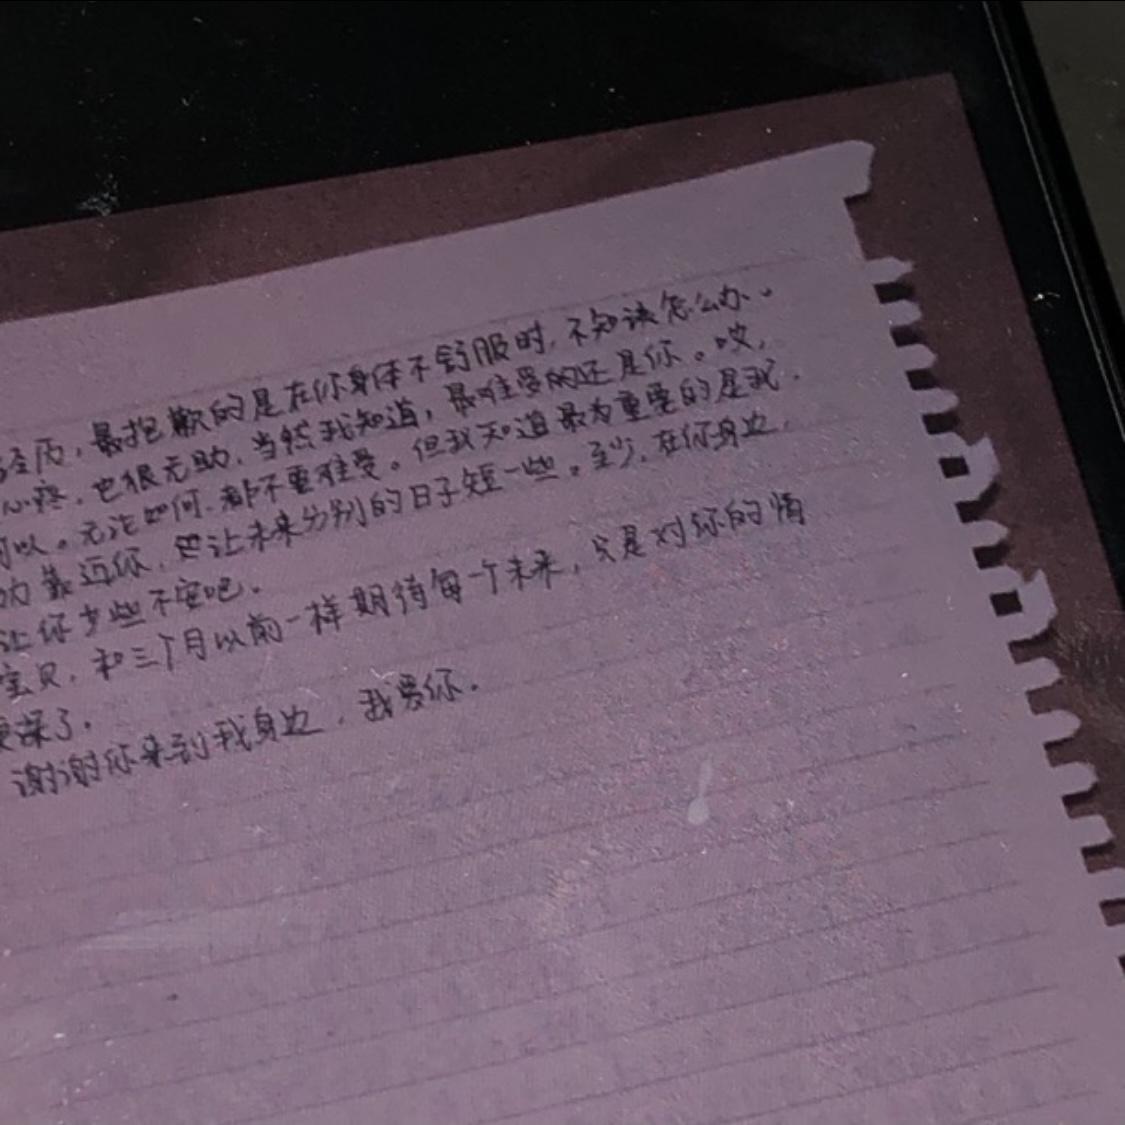 经历，最抱歉的是在你身体不舒服时，不知该怎么办、
心疼，也很无助，当然我知道，最难受的还是你。哎，
可以。无论如何，都不要难受。但我知道最为重要的是我，
力靠近你，让未来分别的日子短一些。至少，在你身边，
让你少些不安吧。
宝贝，和三个月以前一样期待每一个未来，只是对你的情
更深了。
谢谢你来到我身边，我爱你。